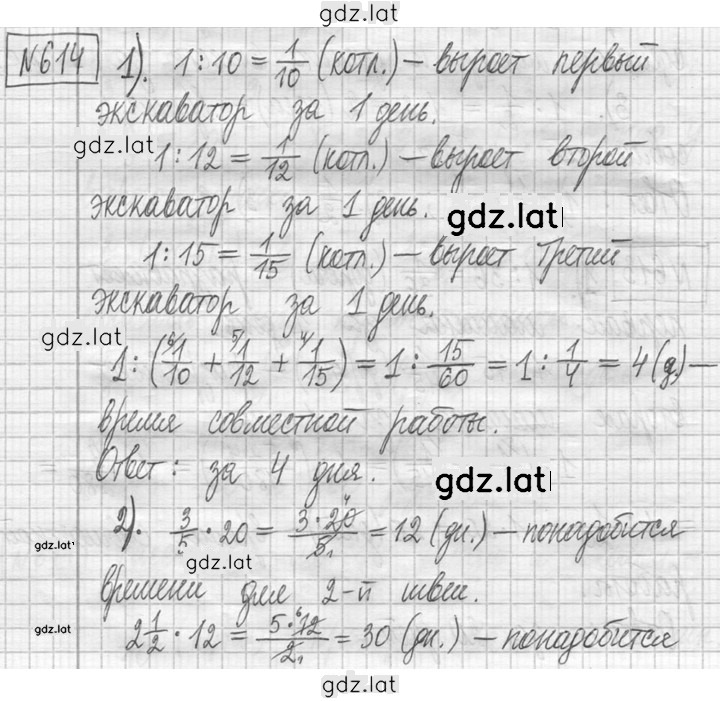 gdz.lat
№614 1). 1:10 = 1/10 (котл.) – выроет первый
экскаватор за 1 день.
gdz.lat
1:12 = 1/12 (котл.) – выроет второй
экскаватор за 1 день.
gdz.lat
1:15 = 1/15 (котл.) – выроет третий
экскаватор за 1 день.
gdz.lat
1:(⁶1/10 + ⁵1/12 + ⁴1/15) = 1 : 15/60 = 1 : 1/4 = 4 (д) –
время совместной работы.
Ответ: за 4 дня.
gdz.lat
2). 3/5 · 20 = 3·20⁴/5₁ = 12 (дн.) – понадобится
gdz.lat
gdz.lat
времени для 2-й швеи.
gdz.lat
2 1/2 · 12 = 5·⁶12/2₁ = 30 (дн.) – понадобится
gdz.lat